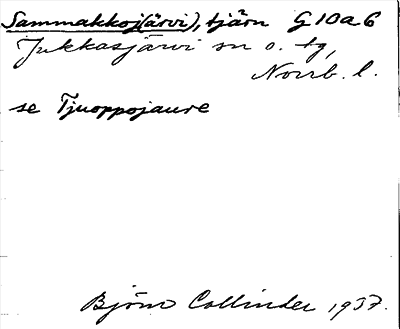 Sammakkoj(ärvi), tjärn G 10 a 6
Jukkasjärvi sn o. tg,
Norrb. l.
se Tjuoppojaure
Björn Collinder 1937.